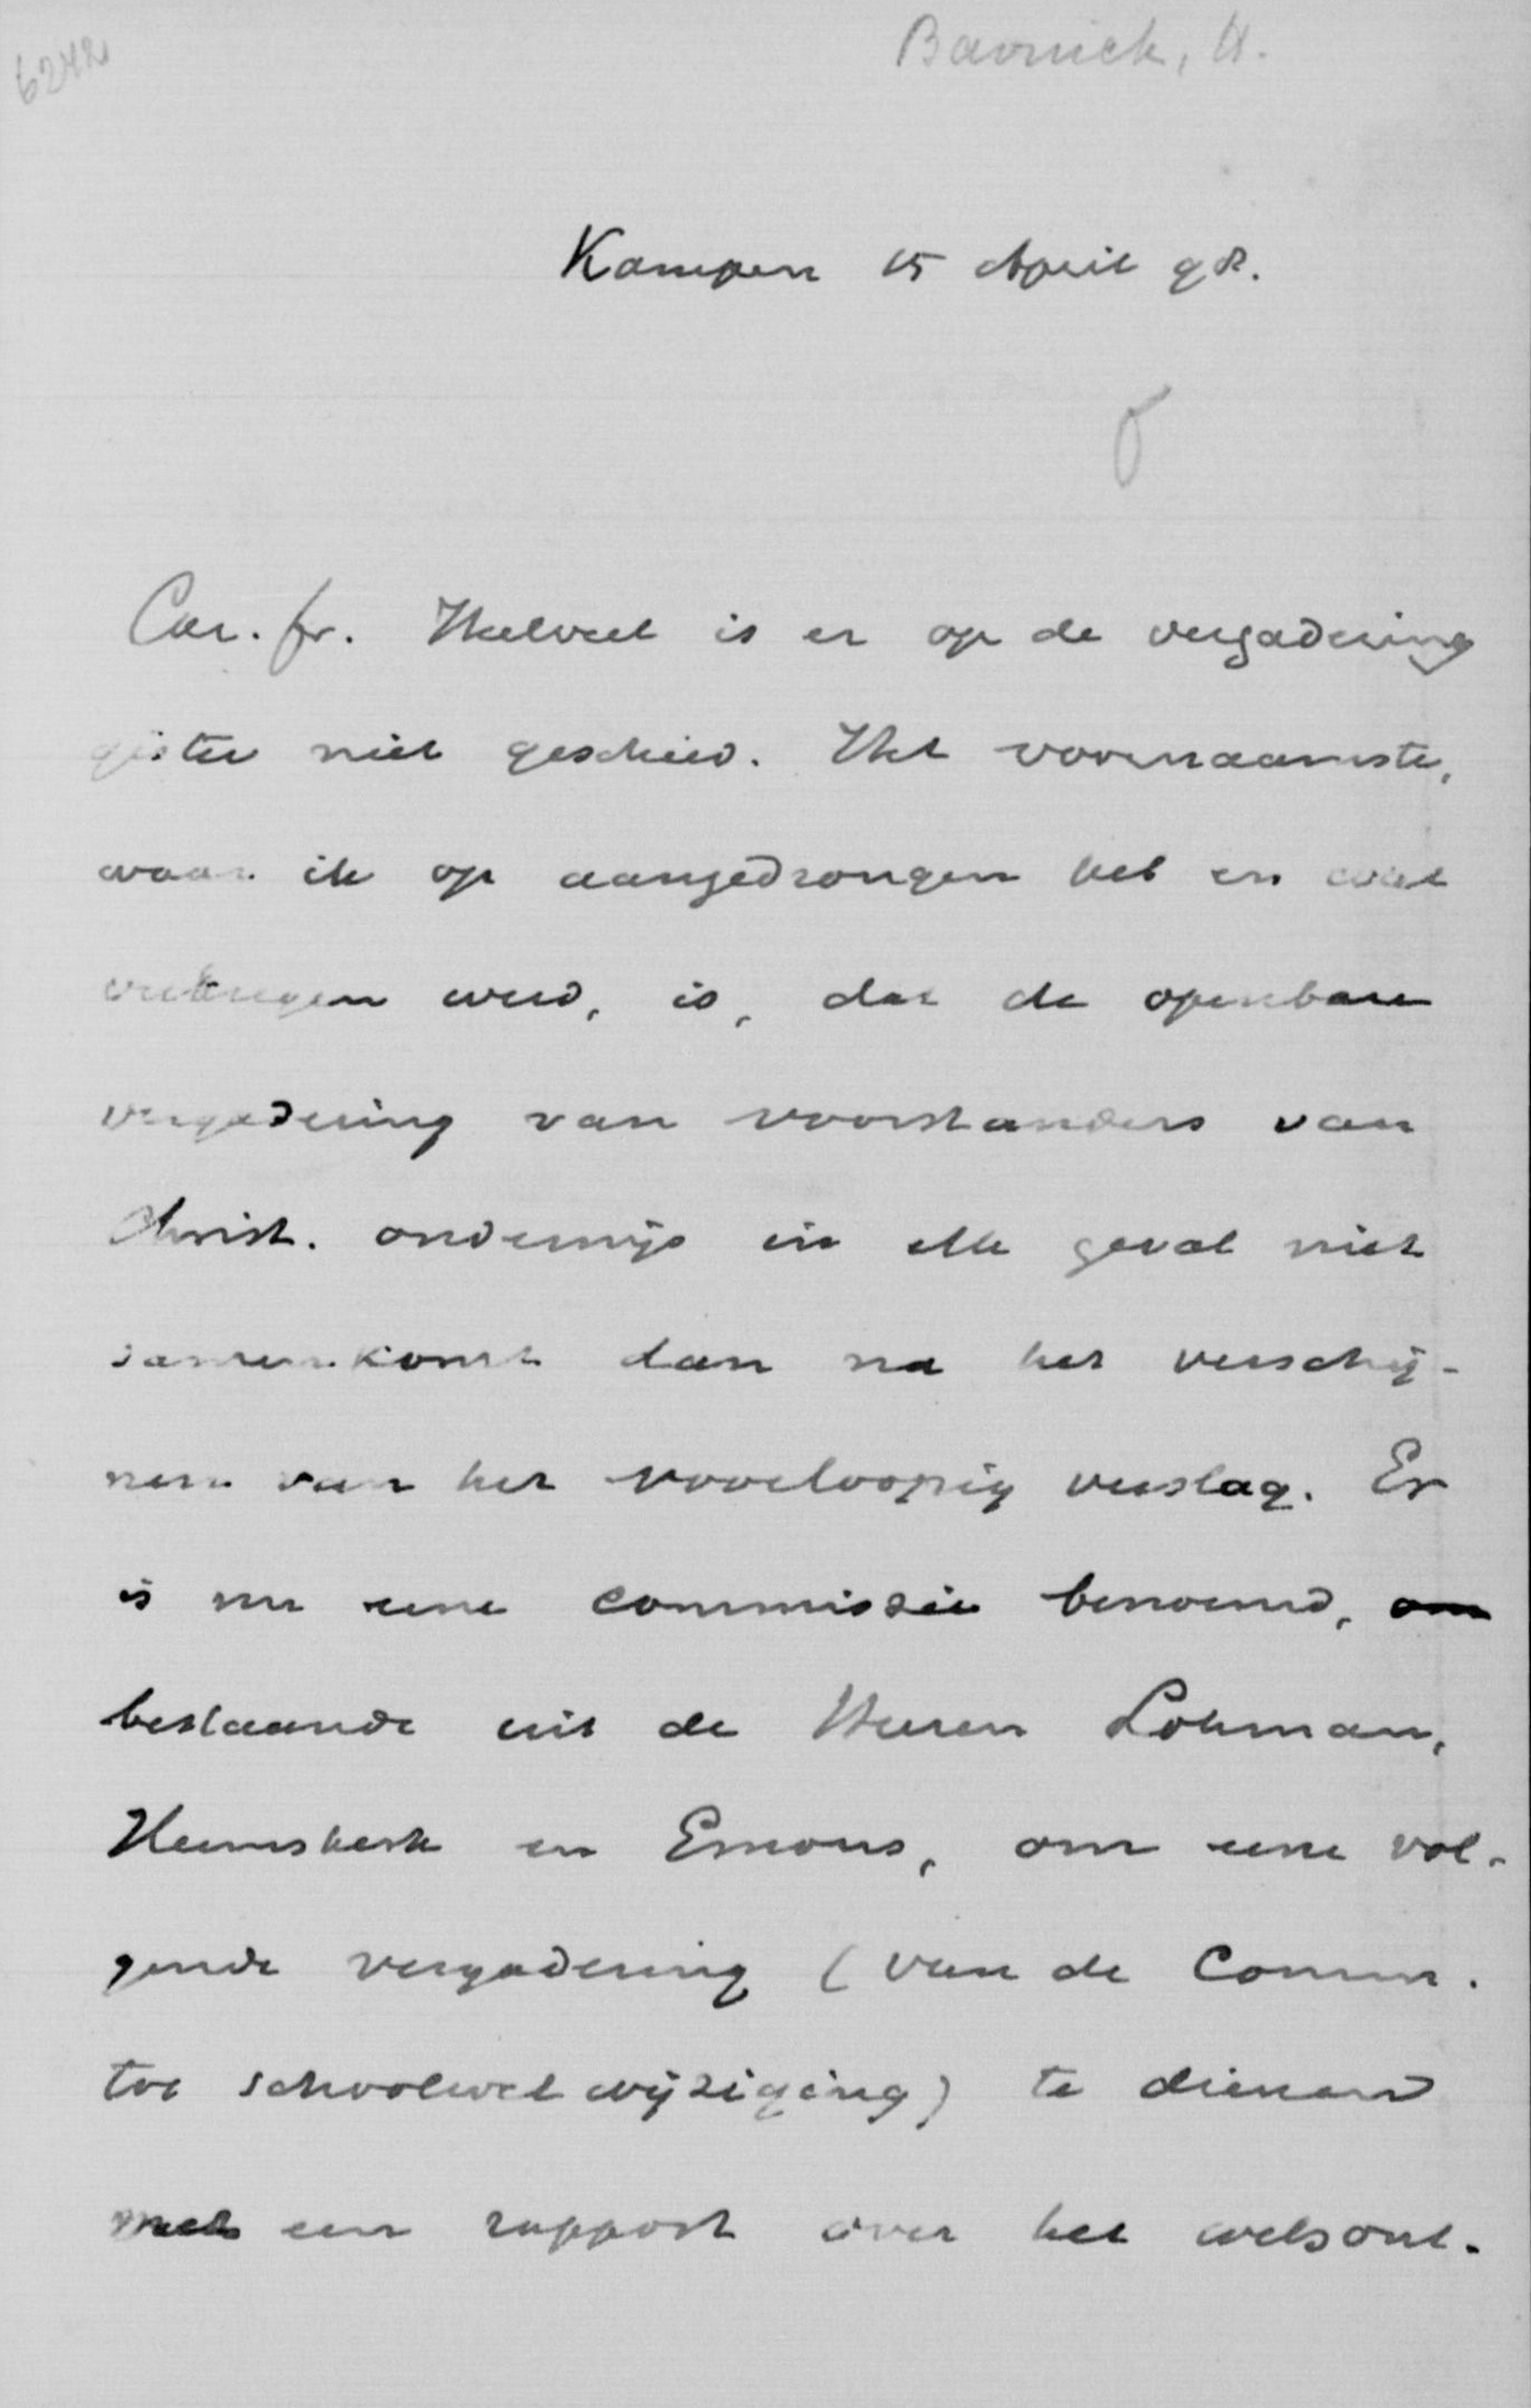 6242
Bavinck, H.
Kampen 15 April 98.
Car. fr. Heelveel is er op de vergadering
gister niet geschied. Het voornaamste,
waar ik op aangedrongen heb en wat
verkregen werd, is, dat de openbare
vergadering van voorstanders van
Christ. onderwijs in elk geval niet
samenkomt dan na het verschij-
nen van het voorloopig verslag. Er
is nu eene commissie benoemd, om
bestaande uit de Heeren Lohman,
Heemskerk en Emous, om eene vol-
gende vergadering (van de Comm.
tot schoolwetwijziging) te dienen
met een rapport over het wetsont-